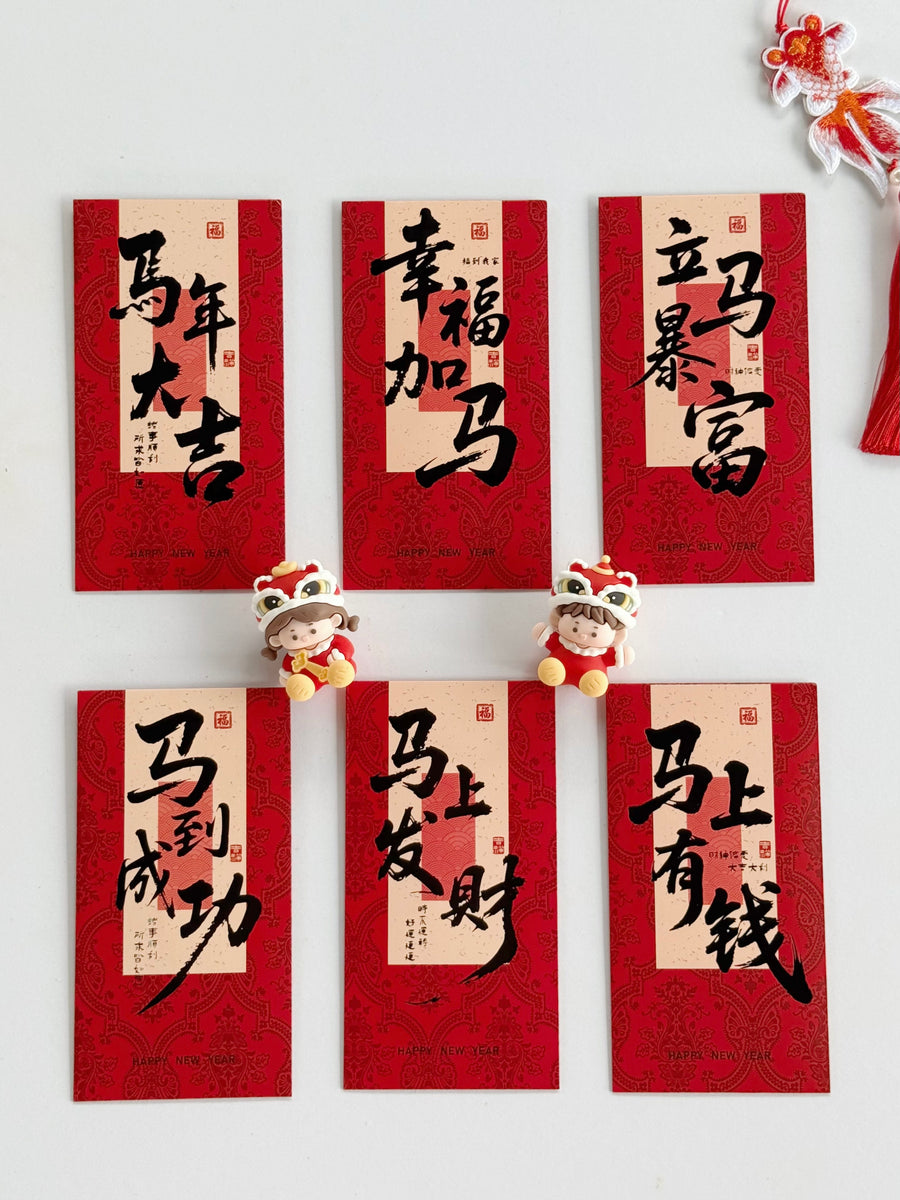 福
馬年大吉
諸事順利
所求皆如愿
HAPPY NEW YEAR
福
幸福加马
福到我家
HAPPY NEW YEAR
福
立马暴富
财神保爱
HAPPY NEW YEAR
福
马到成功
諸事順利
所求皆如
HAPPY NEW YEAR
福
马上发財
時來運轉
好運連連
HAPPY NEW YEAR
福
马上有钱
大吉大利
HAPPY NEW YEAR